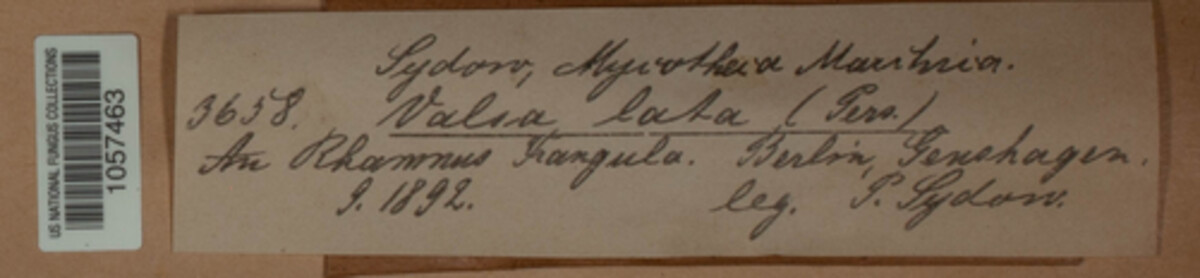 US NATIONAL FUNGUS COLLECTIONS
1057463
Sydow, Mycotheca Marchica.
3658. Valsa lata (Pers.)
An Rhamnus Frangula. Berlin, Genshagen.
9. 1892. leg. P. Sydow.